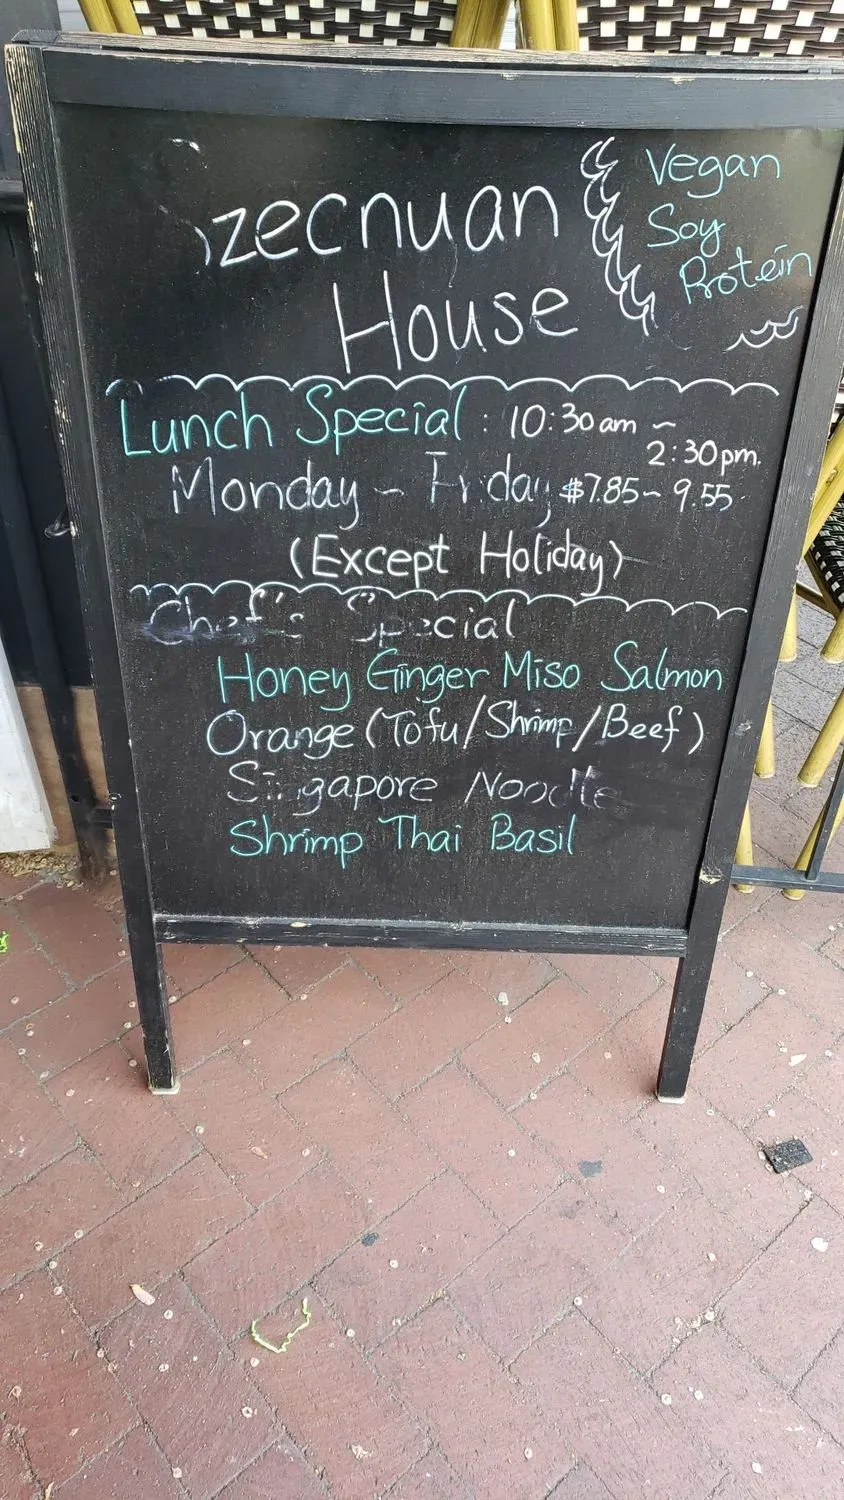 Szechuan
House
Vegan
Soy
Protein
Lunch Special : 10:30am ~
2:30pm.
Monday ~ Friday $7.85~9.55
(Except Holiday)
Chef's Special
Honey Ginger Miso Salmon
Orange (Tofu/Shrimp/Beef)
Singapore Noodle
Shrimp Thai Basil